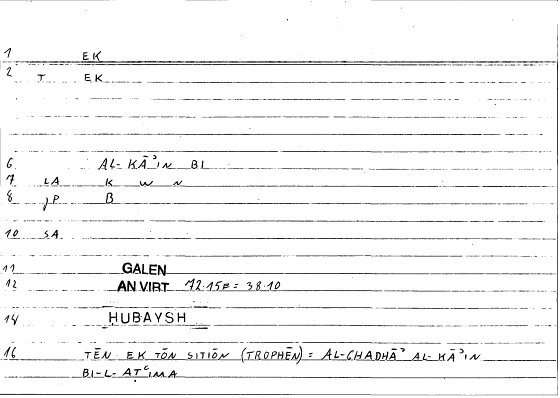 1 EK
2 T EK
6 AL-KĀʾIN BI
7 LA K W N
8 JP B
10 SA
11 GALEN
12 AN VIRT 72.15F = 38.10
14 HUBAYSH
16 TĒN EK TŌN SITIŌN (TROPHĒN) = AL-GHADHĀʾ AL-KĀʾIN
BI-L-AṬʿIMA